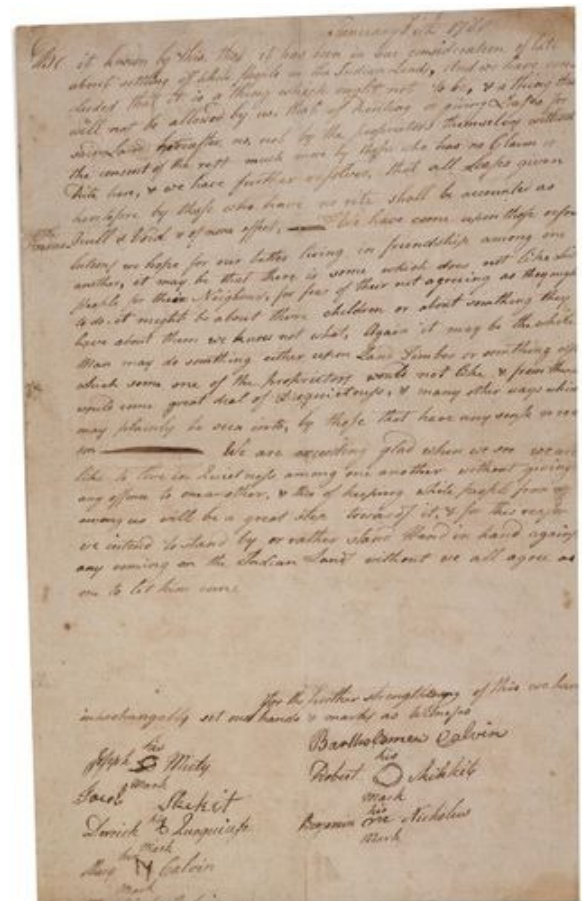 January 178
Be it known by this, that it has been in our consideration of late
about settling of white people on the Indian Lands, And we have con
cluded that it is a thing which ought not to be, & a thing that
will not be allowed by us, that of Renting or giving Leases for
said Land hereafter, no, not by the proprietors themselves without
the consent of the rest much more by those who has no Claim or
Rite here, & we have further resolved, that all Leases given
heretofore by those who have no rite shall be accounted as
Null & Void & of none effect, We have come upon these reso
lutions we hope for our better living in friendship among one
another, it may be that there is some which does not like
people for their Neighbour, for fear of their not agreeing as they ought
to do. it might be about there children or about something they
have about them we knows not what, Again it may be the white
Man may do somthing either upon Land Timber or somthing
which some one of the proprietors would not like & from thence
would come great deal of Disquietness, & many other ways which
may plainly be seen into, by those that have any
We are exceeding glad when we see we are
like to live in Quietness among one another without giving
any offence to one another, & this of keeping white people from
among us will be a great step toward it, & for this reason
we intend to stand by or rather stand Hand in hand against
any coming on the Indian Land without we all agree as
one to let him come
For the further strengthening of this we have
interchangeably set our hands & marks as Witness
Bartholomew Calvin
his
Joseph Micty
mark
his
Robert Skikkit
mark
Jacob Skekit
his
Derrick Quaquiuse
Mark
his
Benjamin Nicholus
Mark
her
Mary Calvin
Mark